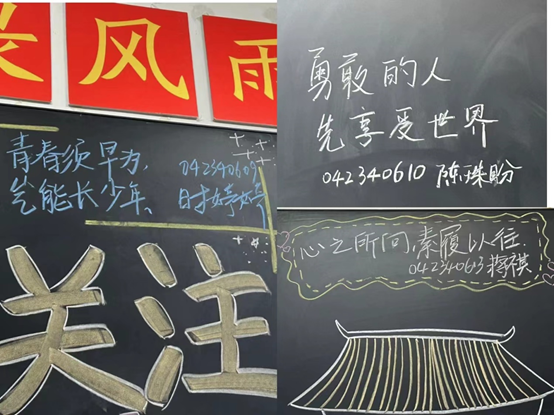 风雨
青春须早为,
岂能长少年、
042340609
关注
勇敢的人
先享受世界
042340610 陈珠盼
心之所向,素履以往.
042340613 蒋祺